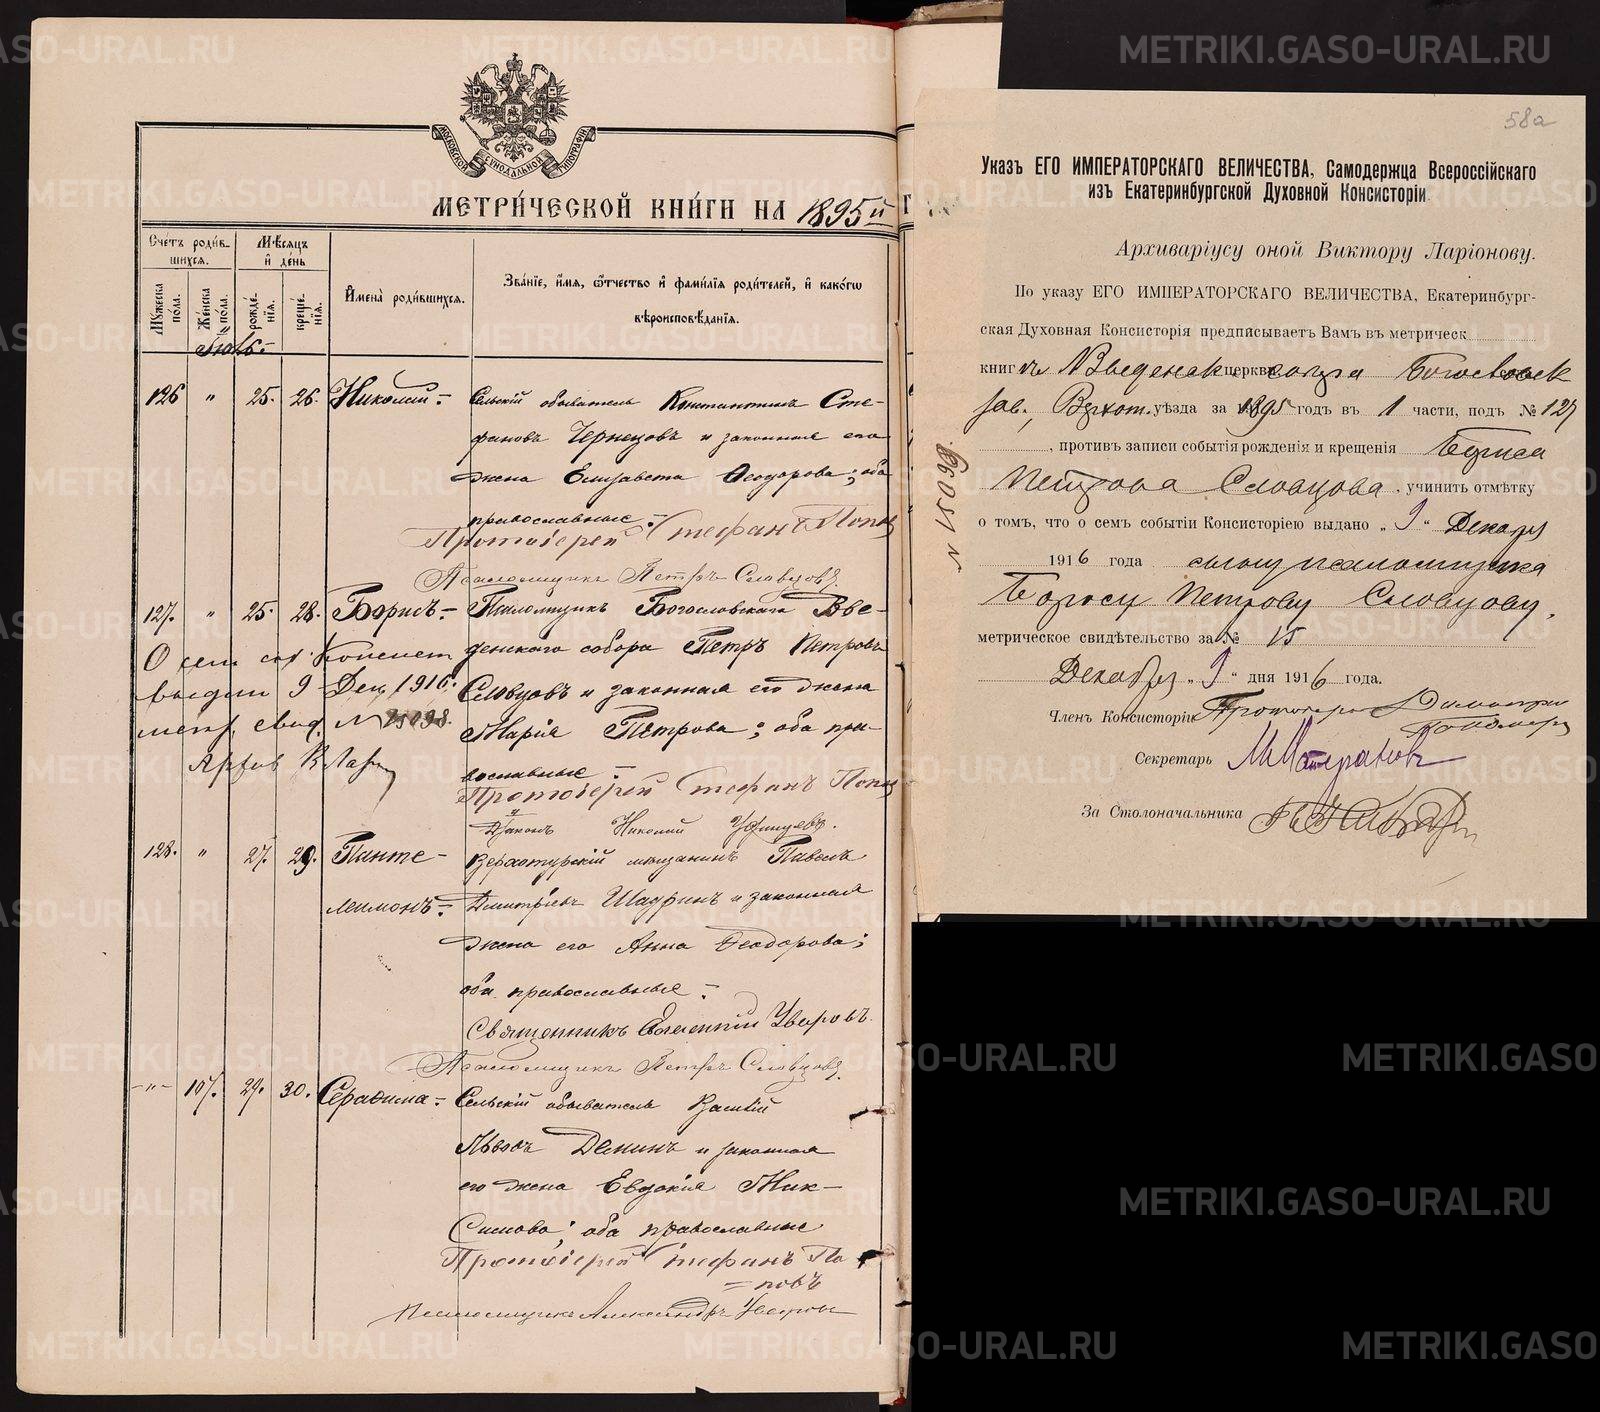 МОСКОВСКОЙ СУНОДАЛЬНОЙ ТИПОГРАФІИ
МЕТРИ́ЧЕСКОЙ КНИ́ГИ НА 1895й Г
Сче́тъ роди́в-
шихся.
Мѣсяцъ
и҆ де́нь
Мꙋжеска по́ла.
Же́нска по́ла.
рожде́нїѧ.
креще́нїѧ.
И҆мена̀ роди́вшихся.
Зва́нїе, и҆́мя, ѻ҆́тчество и҆ фами́лїя роди́телей, и҆ како́гѡ
вѣроисповѣ́данїя.
Іюль.
126 " 25. 26. Николай. Сельскій обыватель Константинъ Сте-
фановъ Чернецовъ и законная его
жена Елизавета Ѳеодорова; оба
православные.
Протоіерей Стефанъ Попов
Псаломщикъ Петръ Словцовъ.
127. " 25. 28. Борисъ. Псаломщикъ Богословскаго Вве-
денскаго собора Петръ Петровъ
Словцовъ и законная его жена
Марія Петрова; оба пра-
вославные.
О сем
выдан 9 Дек. 1916.
метр. свид. №
Протоіерей Стефанъ Попов
Діаконъ Николай
128. " 27. 29. Панте-
леимонъ. Верхотурскій мѣщанинъ Павелъ
Дмитріевъ Шадринъ и законная
жена его Анна Ѳеодорова;
оба православные.
Священникъ Уваровъ.
Псаломщикъ Петръ Словцовъ.
-"- 107. 29. 30. Серафима. Сельскій обыватель Василій
Львовъ Деминъ и законная
его жена Евдокія Мак-
симова; оба православные
Протоіерей Стефанъ По
=повъ
Псаломщикъ Александръ Уваровъ
58а
Указъ ЕГО ИМПЕРАТОРСКАГО ВЕЛИЧЕСТВА, Самодержца Всероссійскаго
изъ Екатеринбургской Духовной Консисторіи
Архиваріусу оной Виктору Ларіонову.
По указу ЕГО ИМПЕРАТОРСКАГО ВЕЛИЧЕСТВА, Екатеринбург-
ская Духовная Консисторія предписываетъ Вамъ въ метрическ
книгѣ Введенск церкви собора Богословск
зав., Верхот. уѣзда за 1895 годъ въ 1 части, подъ № 127
, противъ записи событія рожденія и крещенія Бориса
Петрова Словцова, учинить отмѣтку
о томъ, что о семъ событіи Консисторіею выдано „9" Декабря
1916 года сыну псаломщика
Борису Петрову Словцову,
метрическое свидѣтельство за № 15
Декабря „9" дня 1916 года.
Членъ Консисторіи Протоіерей
Секретарь
За Столоначальника
№ 15099.
METRIKI.GASO-URAL.RU